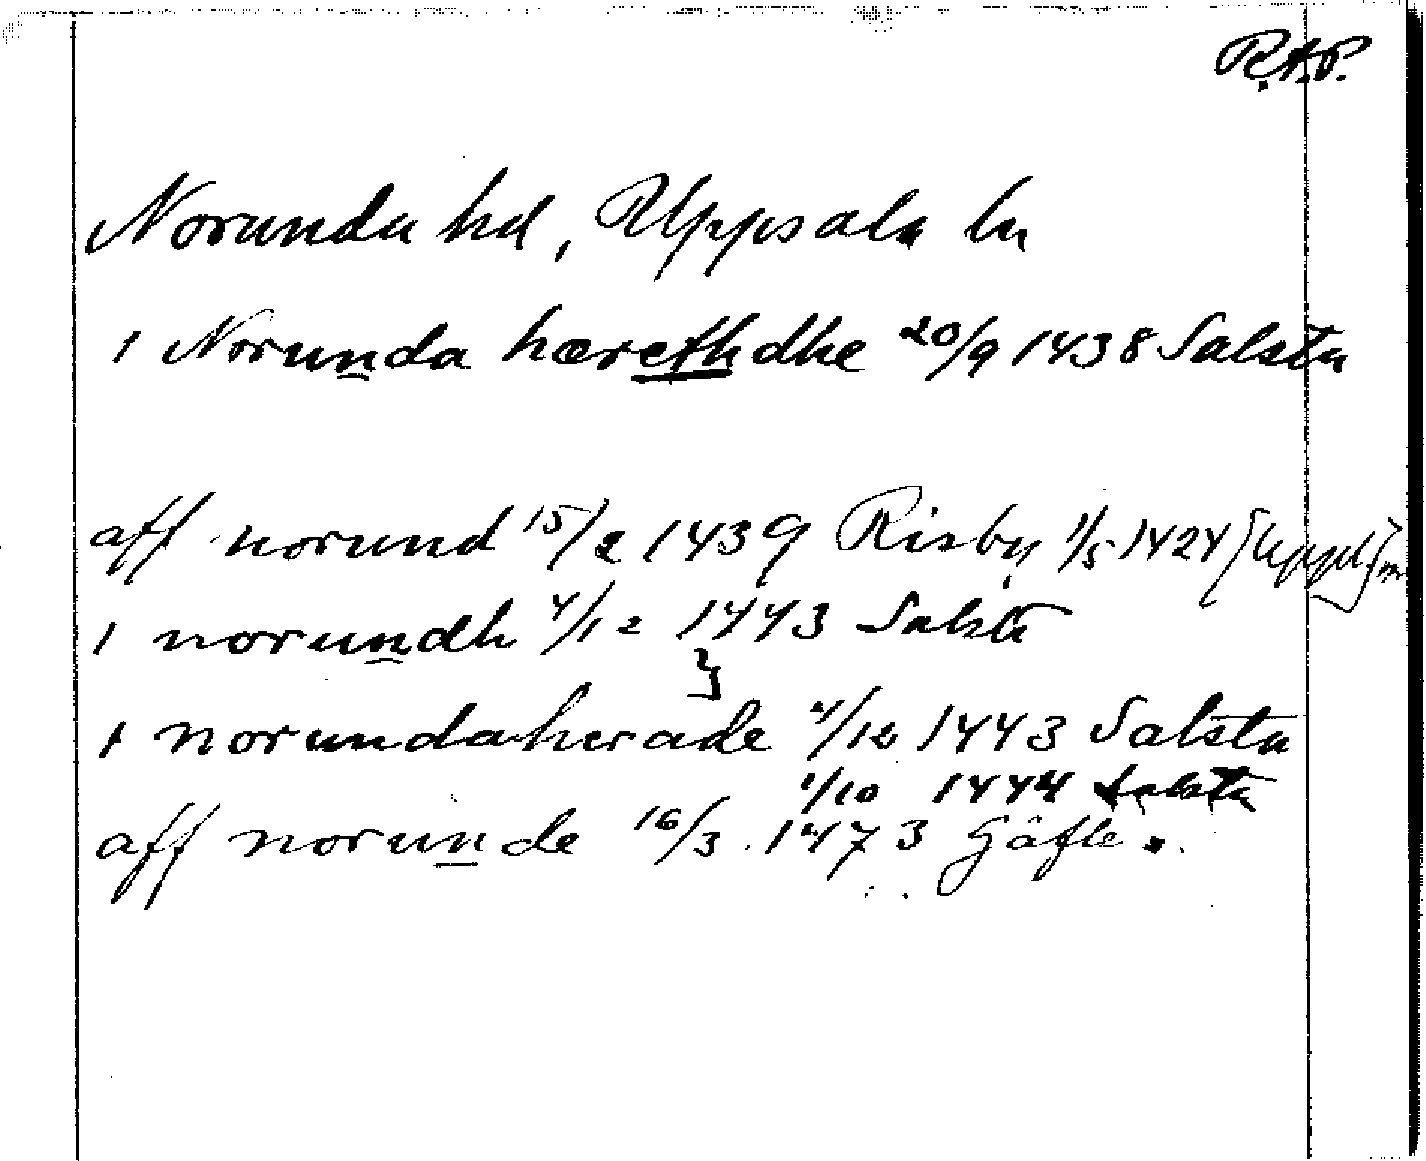 R.A.P.
Norunda hd, Uppsala ln
i Norunda hærethdhe 20/9 1438 Salsta
aff norund 15/2 1439 Risby 1/5 1424
i norundh 4/12 1443 Salsta
i norundaherade 4/12 1443 Salsta
1/10 1444 Salsta
aff norunde 16/3 1473 Gäfle.